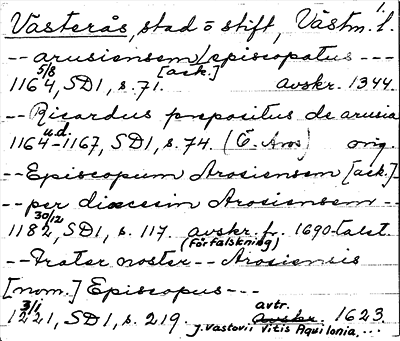 1.
Västerås, stad o stift, Västm. l.
-- arusiensem episcopatus ---
[ack.]
5/8
1164, SD1, s. 71. avskr. 1344.
-- Ricardus prepositus de arusia
u.d.
1164-1167, SD1, s. 74. (Ö. Aros) orig.
-- Episcopum Arosiensem [ack.]
-- per diœcesim Arosiensem --
30/12
1182, SD1, s. 117. avskr. fr. 1690-talet.
(Förfalskning)
-- Frater noster -- Arosiensis
[nom.] Episcopus ---
3/1 avtr.
1221, SD1, s. 219. avskr. 1623.
J. Vastovii Vitis Aquilonia...